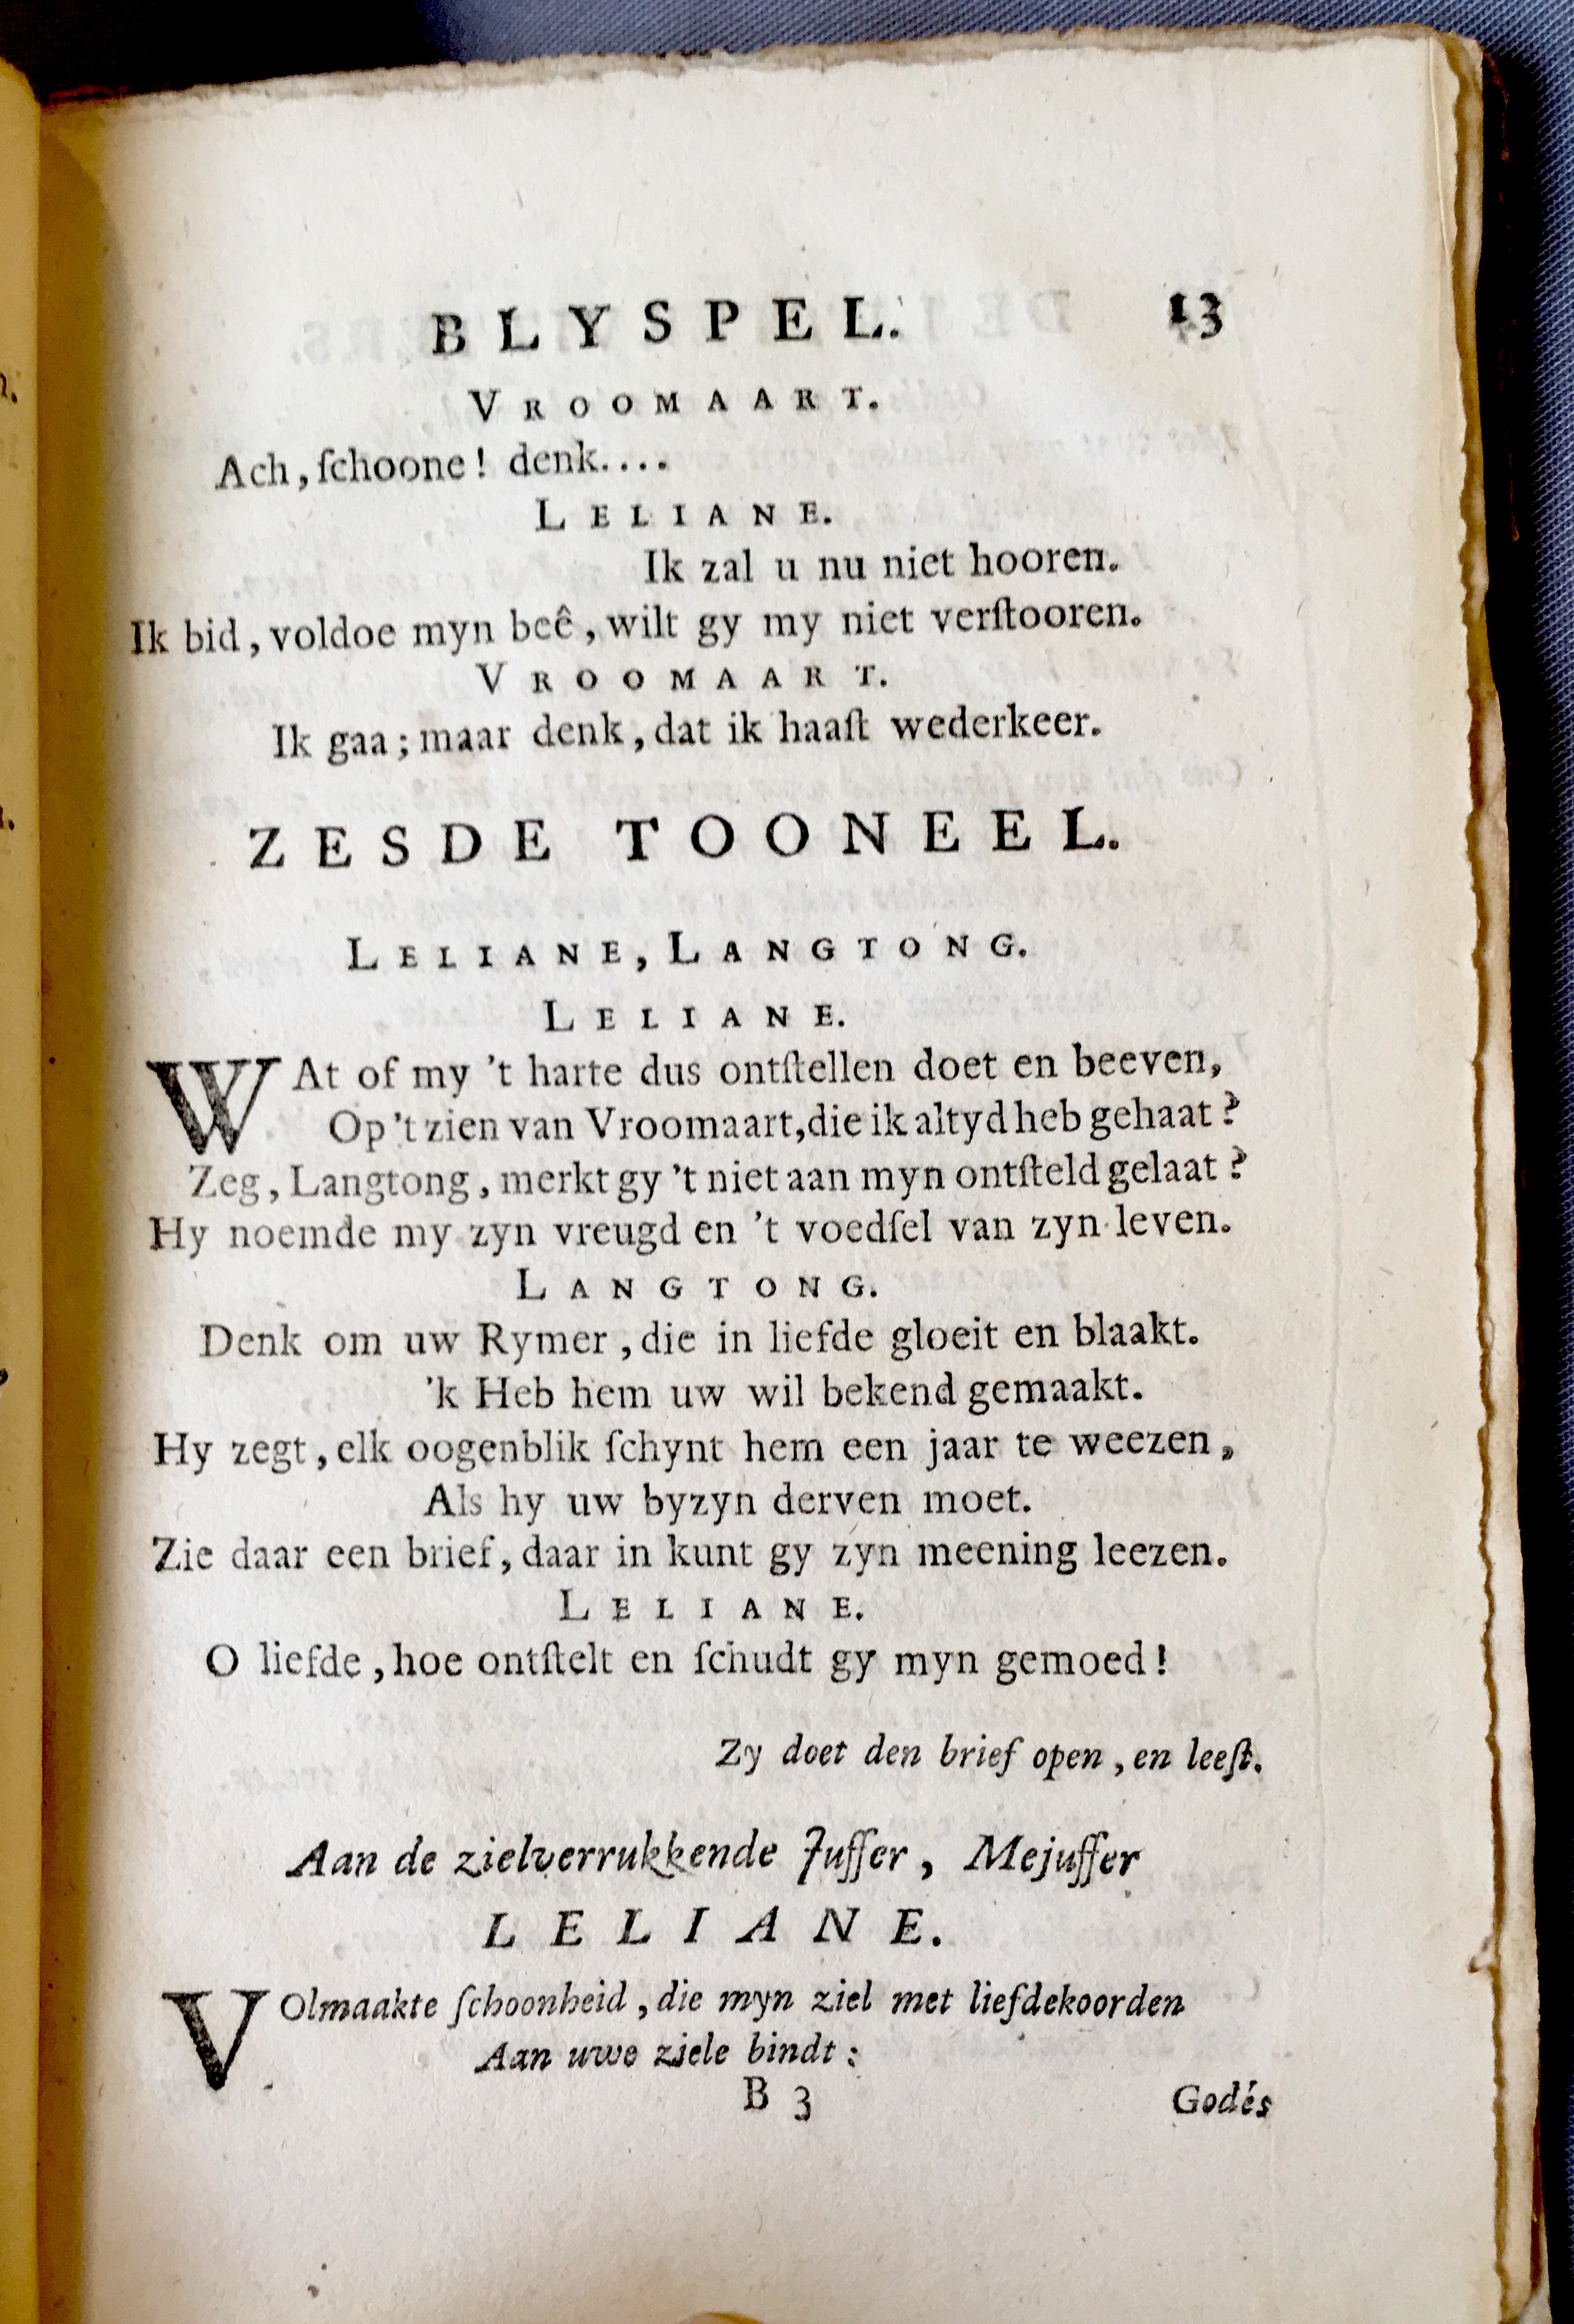 BLYSPEL. 13
VROOMAART.
Ach, ſchoone! denk....
LELIANE.
Ik zal u nu niet hooren.
Ik bid, voldoe myn beê, wilt gy my niet verſtooren.
VROOMAART.
Ik gaa; maar denk, dat ik haaſt wederkeer.
ZESDE TOONEEL.
LELIANE, LANGTONG.
LELIANE.
WAt of my 't harte dus ontſtellen doet en beeven,
Op 't zien van Vroomaart, die ik altyd heb gehaat?
Zeg, Langtong, merkt gy 't niet aan myn ontſteld gelaat?
Hy noemde my zyn vreugd en 't voedſel van zyn leven.
LANGTONG.
Denk om uw Rymer, die in liefde gloeit en blaakt.
'k Heb hem uw wil bekend gemaakt.
Hy zegt, elk oogenblik ſchynt hem een jaar te weezen,
Als hy uw byzyn derven moet.
Zie daar een brief, daar in kunt gy zyn meening leezen.
LELIANE.
O liefde, hoe ontſtelt en ſchudt gy myn gemoed!
Zy doet den brief open, en leeſt.
Aan de zielverrukkende Juſſer, Mejuſſer
LELIANE.
VOlmaakte ſchoonheid, die myn ziel met liefdekoorden
Aan uwe ziele bindt:
B 3 Godés